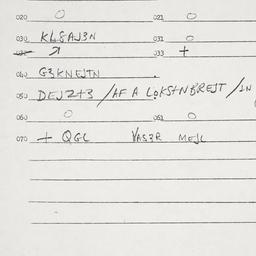 020 O 021 O
030 KL8AJ3N 031 O
032 ↗ 033 +
040 G3KNEJTN .
050 DEJ2+3 /AF A LOKS+NBREJT /IN
060 O 061 O
070 + QGL VAS3R MEJL